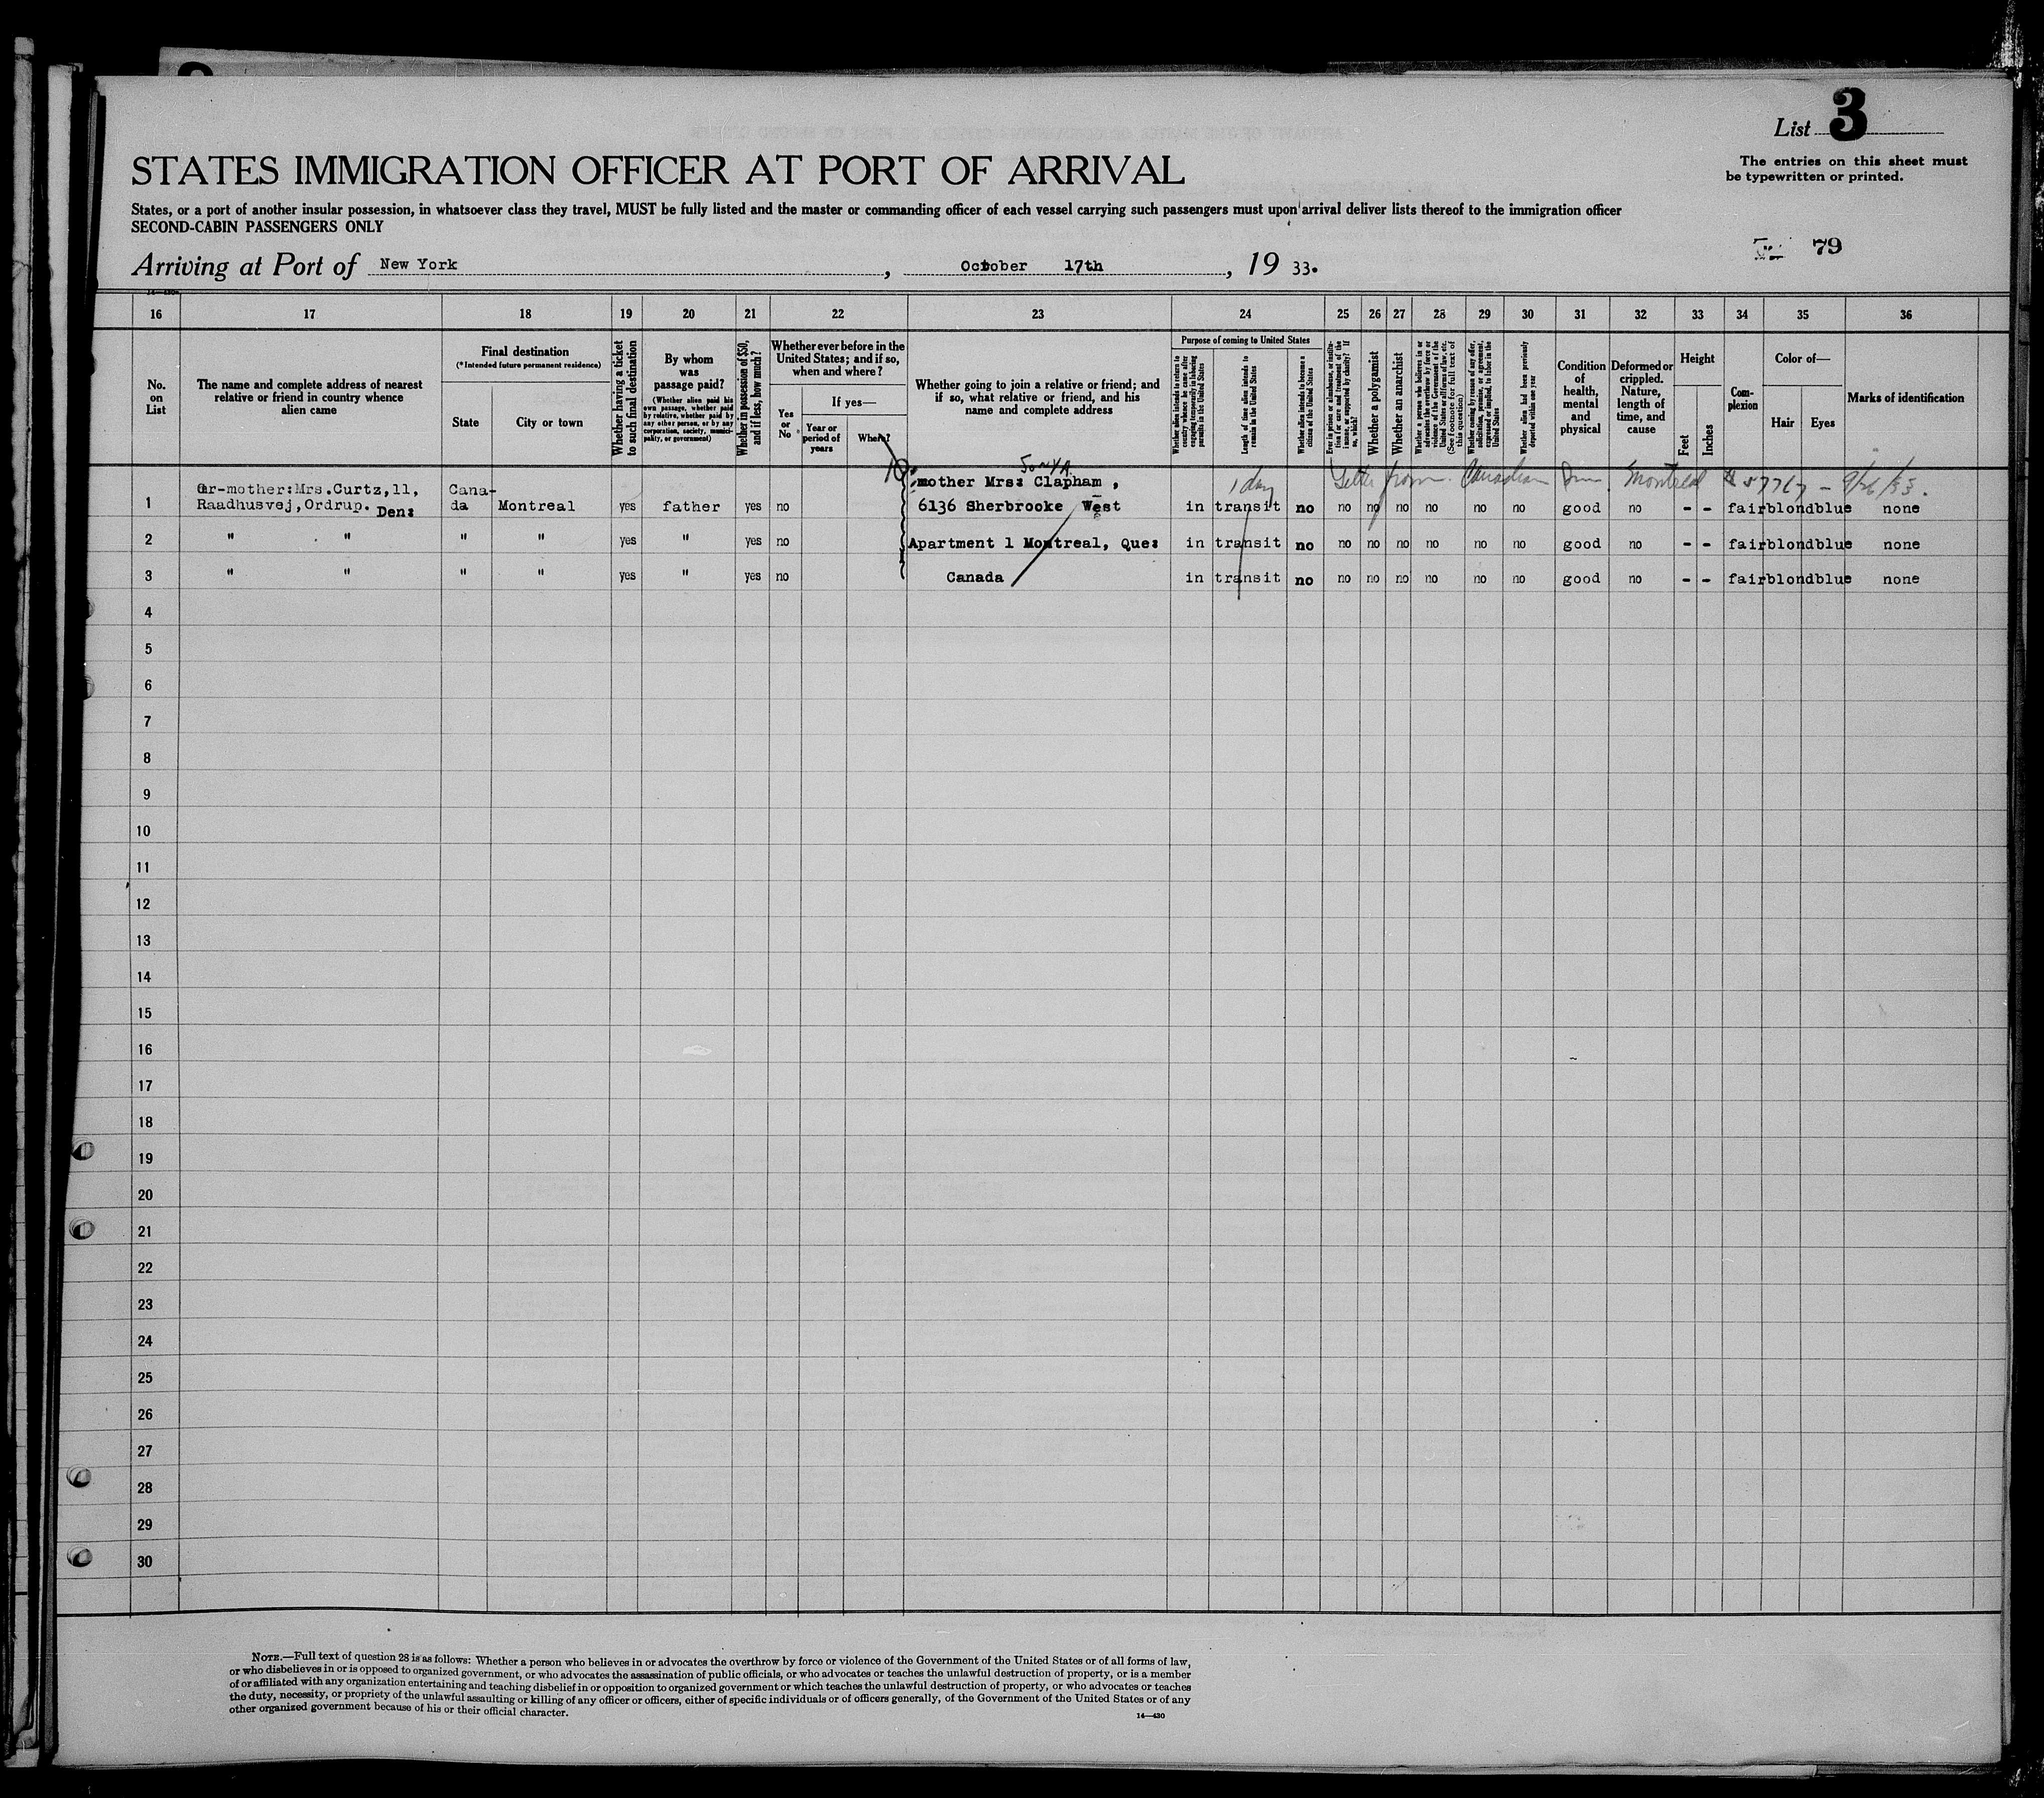 List 3
The entries on this sheet must
be typewritten or printed.
STATES IMMIGRATION OFFICER AT PORT OF ARRIVAL
States, or a port of another insular possession, in whatsoever class they travel, MUST be fully listed and the master or commanding officer of each vessel carrying such passengers must upon arrival deliver lists thereof to the immigration officer
SECOND-CABIN PASSENGERS ONLY
79
Arriving at Port of New York, October 17th, 19 33.
16 17 18 19 20 21 22 23 24 25 26 27 28 29 30 31 32 33 34 35 36
No.
on
List
The name and complete address of nearest
relative or friend in country whence
alien came
Final destination
(*Intended future permanent residence)
State
City or town
Whether having a ticket
to such final destination
By whom
was
passage paid?
(Whether alien paid his
own passage, whether paid
by relative, whether paid by
any other person, or by any
corporation, society, munici-
pality, or government)
Whether in possession of $50,
and if less, how much?
Whether ever before in the
United States; and if so,
when and where?
Yes
or
No
If yes—
Year or
period of
years
Where?
Whether going to join a relative or friend; and
if so, what relative or friend, and his
name and complete address
Purpose of coming to United States
Whether alien intends to return to
country whence he came after
engaging temporarily in laboring
pursuits in the United States
Length of time alien intends to
remain in the United States
Whether alien intends to become a
citizen of the United States
Ever in prison or almshouse, or institu-
tion for care and treatment of the
insane, or supported by charity? If
so, which?
Whether a polygamist
Whether an anarchist
Whether a person who believes in or
advocates the overthrow by force or
violence of the Government of the
United States or all forms of law, etc.
(See footnote for full text of
this question)
Whether coming by reason of any offer,
solicitation, promise, or agreement,
expressed or implied, to labor in the
United States
Whether alien had been previously
deported within one year
Condition
of
health,
mental
and
physical
Deformed or
crippled.
Nature,
length of
time, and
cause
Height
Feet
Inches
Com-
plexion
Color of—
Hair
Eyes
Marks of identification
SONYA
1 day Letter from Canadian Imm. Montreal # 57767 - 9/26/33.
1 Gr-mother:Mrs.Curtz,11, Cana- mother Mrs: Clapham ,
Raadhusvej,Ordrup. Den: da Montreal yes father yes no 6136 Sherbrooke West in transit no no no no no no no good no - - fair blond blue none
2 " " " " yes " yes no Apartment 1 Montreal, Que: in transit no no no no no no no good no - - fair blond blue none
3 " " " " yes " yes no Canada in transit no no no no no no no good no - - fair blond blue none
4
5
6
7
8
9
10
11
12
13
14
15
16
17
18
19
20
21
22
23
24
25
26
27
28
29
30
NOTE.—Full text of question 28 is as follows: Whether a person who believes in or advocates the overthrow by force or violence of the Government of the United States or of all forms of law,
or who disbelieves in or is opposed to organized government, or who advocates the assassination of public officials, or who advocates or teaches the unlawful destruction of property, or is a member
of or affiliated with any organization entertaining and teaching disbelief in or opposition to organized government or which teaches the unlawful destruction of property, or who advocates or teaches
the duty, necessity, or propriety of the unlawful assaulting or killing of any officer or officers, either of specific individuals or of officers generally, of the Government of the United States or of any
other organized government because of his or their official character.
14—430